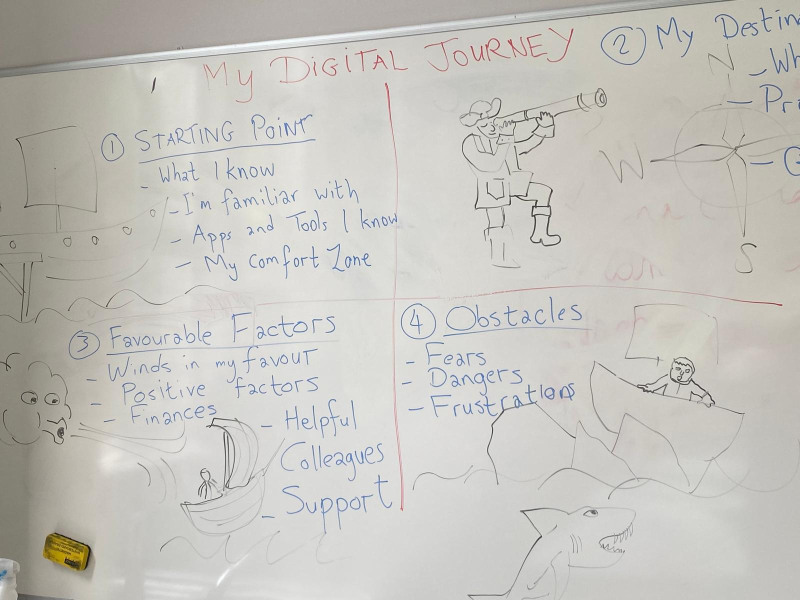 MY DIGITAL JOURNEY
① STARTING POINT
- What I know
- I'm familiar with
- Apps and Tools I know
- My Comfort Zone
② My Destin
- Wh
- Pri
- G
N
W
S
③ Favourable Factors
- Winds in my favour
- Positive factors
- Finances
- Helpful
Colleagues
- Support
④ Obstacles
- Fears
- Dangers
- Frustrations